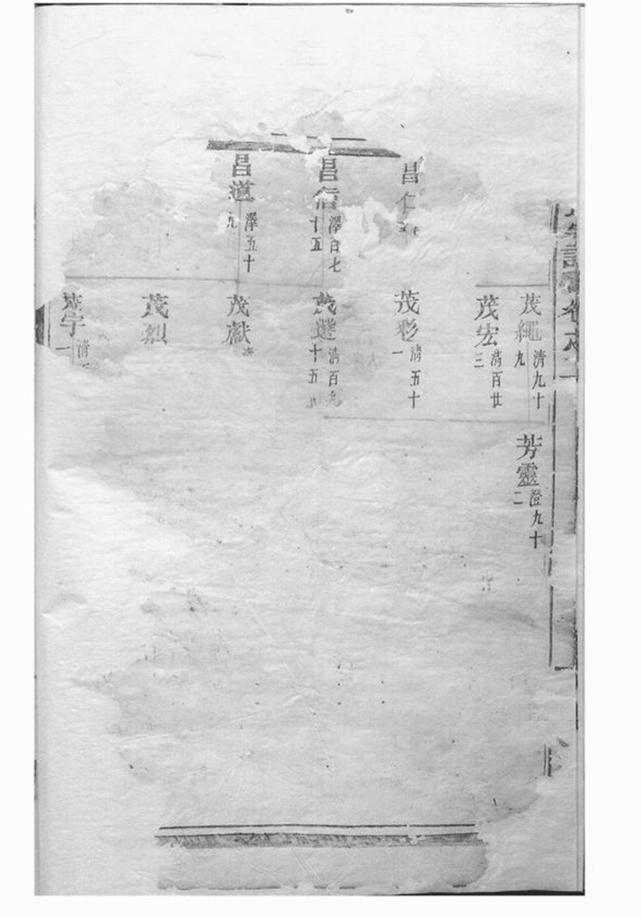 宗譜卷之二
昌仁
昌信 澤百七十五
昌道 澤五十九
茂繩 清九十九
茂宏 清百廿三
茂彩 清五十一
茂 清百九十五
茂獻
茂烈
茂宇 清
芳靈 澄九十二